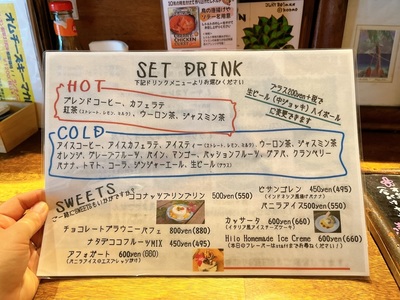 SET DRINK
下記ドリンクメニューよりお選びください
HOT
ブレンドコーヒー、カフェラテ
紅茶(ストレート、レモン、ミルク)、ウーロン茶、ジャスミン茶
プラス200yen+税で
生ビール(中ジョッキ)ハイボール
に変更できます
COLD
アイスコーヒー、アイスカフェラテ、アイスティー(ストレート、レモン、ミルク)、ウーロン茶、ジャスミン茶
オレンジ、グレープフルーツ、パイン、マンゴー、パッションフルーツ、グアバ、クランベリー
バナナ、トマト、コーラ、ジンジャーエール、生ビール(グラス)
SWEETS
ご一緒にSWEETSもいかがですか?
ココナッツプリンプリン 500yen(550)
チョコレートブラウニーパフェ 800yen(880)
ナタデココフルーツMIX 450yen(495)
アフォガート 600yen(660)
(バニラアイスのエスプレッソがけ)
ピサンゴレン 450yen(495)
(インドネシア風揚げバナナ)
バニラアイス500yen(550)
カッサータ 600yen(660)
(イタリア風アイスチーズケーキ)
Hilo Homemade Ice Creme 600yen(660)
(本日のフレーバーはstaffまでお尋ねください!)